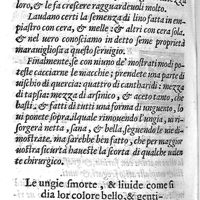 loro, & le fa crescere ragguardeuoli molto.
Laudano certi la semenza di lino fatta in em
piastro con cera, & melle: & altri con cera sola,
& nel uero conosciamo in detto seme proprietà
marauigliosa a questo seruigio.
Finalmente, se con niun de' mostrati modi po-
teste cacciarne le macchie; prendete una parte di
uischio di quercia: quattro di cantharidi: mezza
di tapsia: mezza di arsinico, & aceto tanto, che
basti. & fatti di tutti una forma di unguento, lo
ui ponete sopra. ilquale rimouendo l'ungia, ui ri-
sorgerà netta, sana, & bella, seguendo le uie di-
mostrate. ma sarebbe ben fatto, che per maggior
uostra sicurtà haueste la scorta di qualche ualen
te chirurgico.
Le ungie smorte, & liuide come si
dia lor colore bello, & genti-